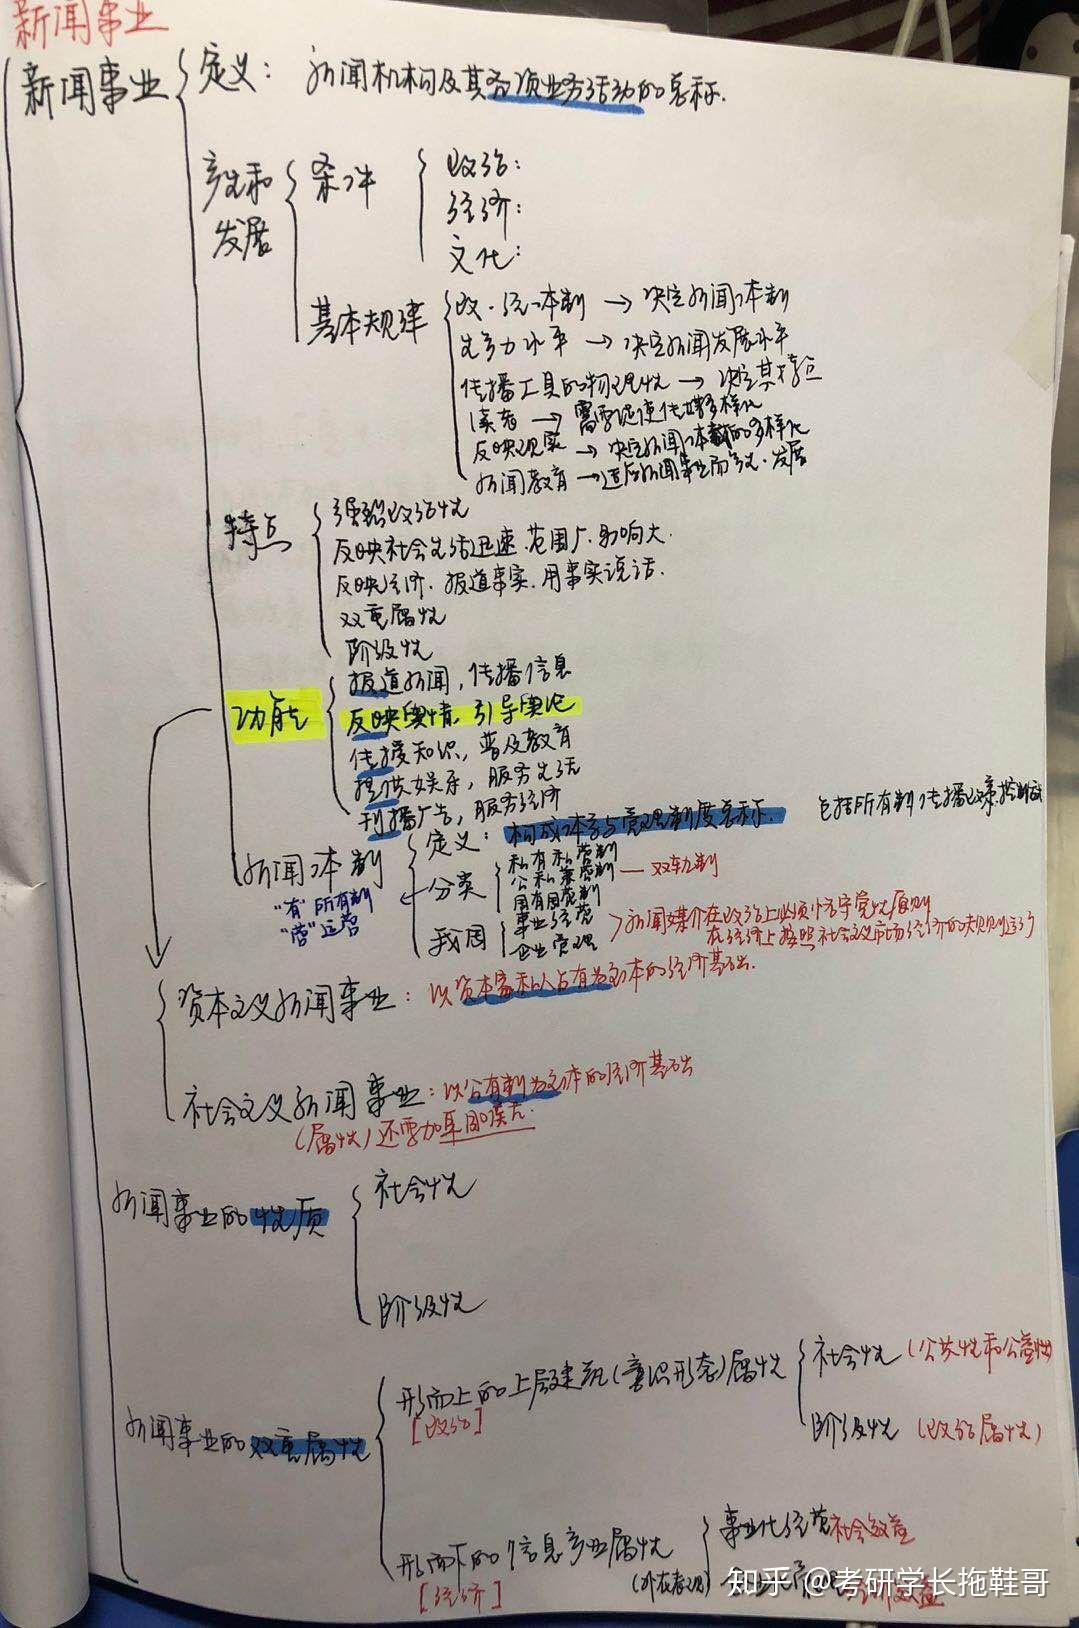 新闻事业
新闻事业
定义：新闻机构及其各项业务活动的总称.
产生和发展
条件
政治：
经济：
文化：
基本规律
政.经体制→决定新闻体制
生产力水平→决定新闻发展水平
传播工具的物理性→决定其特点
读者→需要促使传媒多样化
反映现实→决定新闻体裁的多样化
新闻教育→适应新闻事业而产生.发展
特点
强烈政治性
反映社会生活迅速.范围广.影响大.
反映经济.报道事实.用事实说话.
双重属性
阶级性
功能
报道新闻，传播信息
反映舆情，引导舆论
传授知识，普及教育
提供娱乐，服务生活
刊播广告，服务经济
新闻体制
定义：构成体系与管理制度总称.
包括所有制传播政策
分类
私有私营制
公私兼营制
国有国营制
—双轨制
"有"所有制
"营"运营
我国
事业经营
企业管理
>新闻媒介在政治上必须恪守党性原则
在经济上按照社会主义市场经济的规则运行
资本主义新闻事业：以资本家私人占有为主体的经济基础.
社会主义新闻事业：以公有制为主体的经济基础
(属性)还要加集团模式.
新闻事业的性质
社会性
阶级性
新闻事业的双重属性
形而上的上层建筑(意识形态)属性
[政治]
社会性(公共性和公益性)
阶级性(政治属性)
形而下的信息产业属性
[经济]
事业化经营社会效益
知乎 @考研学长拖鞋哥